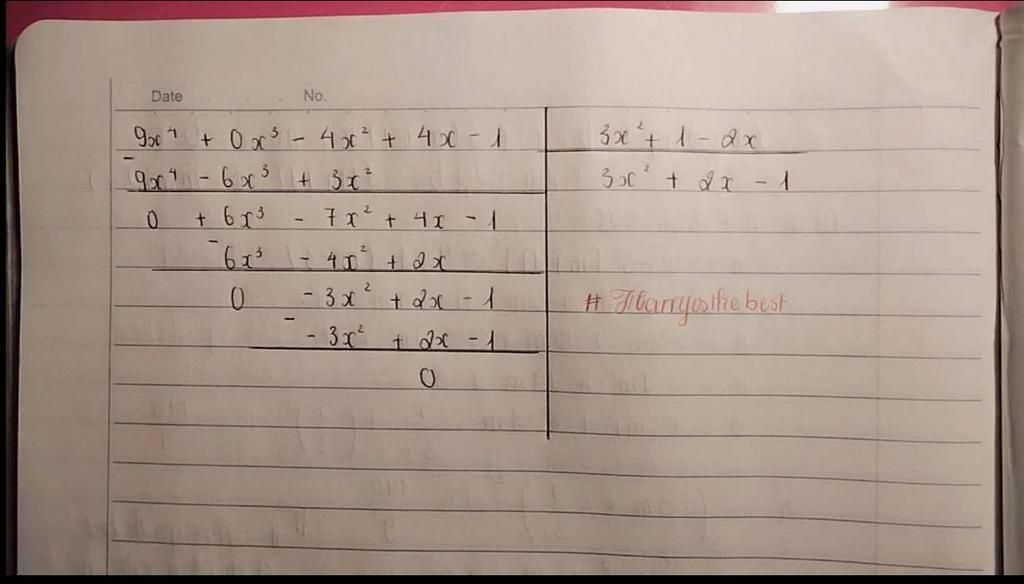 Date No.
9x⁴ + 0x³ - 4x² + 4x - 1
3x² + 1 - 2x
- 9x⁴ - 6x³ + 3x²
3x² + 2x - 1
0 + 6x³ - 7x² + 4x - 1
- 6x³ - 4x² + 2x
0 - 3x² + 2x - 1
# Harryisthebest
- - 3x² + 2x - 1
0